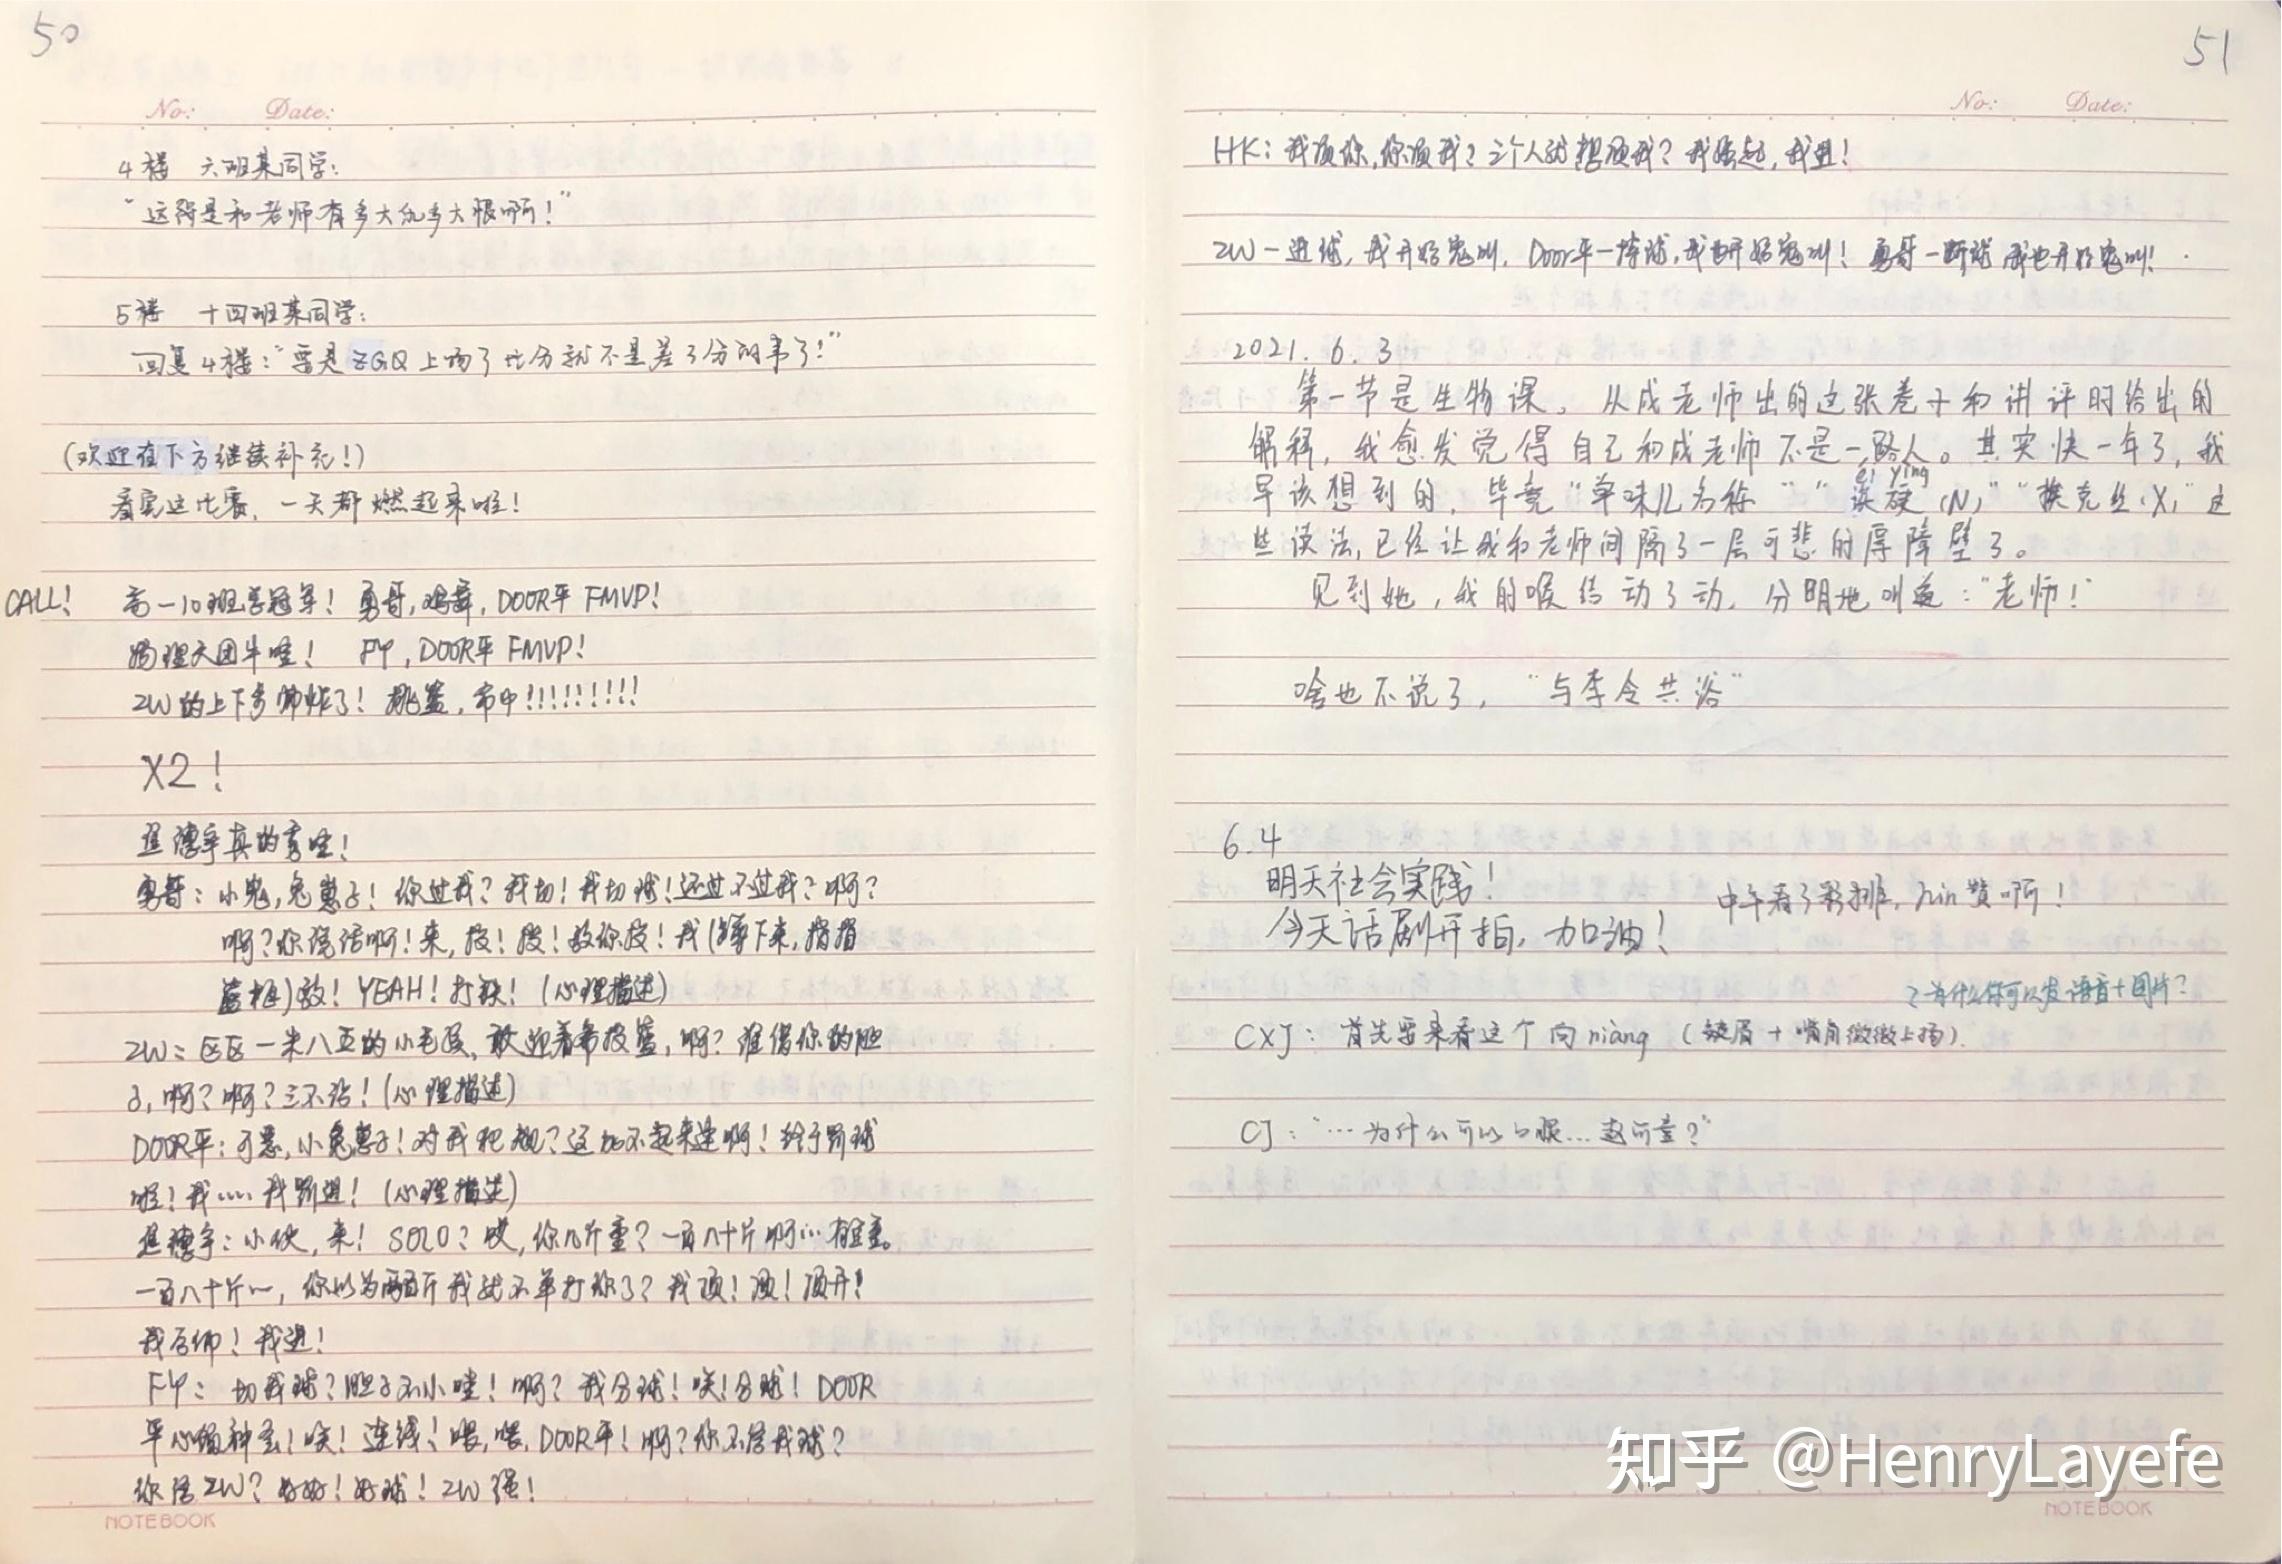 50
No: Date:
4楼 六班某同学:
“这得是和老师有多大仇多大恨啊!”
5楼 十四班某同学:
回复4楼:“要是ZGQ上场了比分就不是差3分的事了!”
(欢迎在下方继续补充!)
看完这比赛,一天都燃起来啦!
CALL! 高一10班总冠军! 勇哥,鸡哥,DOOR平 FMVP!
物理天团牛哇! FY,DOOR平 FMVP!
ZW的上下考帅炸了! 挑篮,命中!!!!!!!!!
X2!
逄德宇真的秀哇!
勇哥:小鬼,兔崽子!你过我?我切!我切球!还过不过我?啊?
啊?你说话啊!来,投!投!放你投!我(蹲下来,指指
篮框)放!YEAH!打铁!(心理描述)
ZW:区区一米八五的小毛孩,敢迎着希投篮,啊?谁借你的胆
子,啊?啊?三不沾!(心理描述)
DOOR平:可恶,小兔崽子!对我犯规?这加不起来进啊!给予罚球
啦!我……我罚进!(心理描述)
逄德宇:小伙,来!SOLO?哎,你几斤重?一百八十斤啊…有点重。
一百八十斤…,你以为两百斤我就不单打你了?我顶!顶!顶开!
我后仰!我进!
FY:切我球?胆子不小哇!啊?我分球!哎!分球!DOOR
平心领神会!哎!连线!嘿,嘿,DOOR平!啊?你不信我球?
你信ZW?好好!好球!ZW强!
NOTEBOOK
51
No: Date:
HK:我顶你,你顶我?三个人就想顶我?我跳起,我进!
ZW一进球,我开始鬼叫,Door平一持球,我也开始鬼叫!勇哥一断球我也开始鬼叫!
2021.6.3
第一节是生物课。从成老师出的这张卷子和讲评时给出的
解释,我愈发觉得自己和成老师不是一路人。其实快一年了,我
ei ying
早该想到的,毕竟“单味儿名称”“诶硬(N)”“挨克丝(X)”这
些读法,已经让我和老师间隔了一层可悲的厚障壁了。
见到她,我的喉结动了动,分明地叫道:“老师!”
啥也不说了,“与李令共浴”
6.4
明天社会实践!
今天话剧开拍,加油!
中午看了彩排,hin赞啊!
?为什么你可以发语音+图片?
CXJ:首先要来看这个向niàng(皱眉+嘴角微微上扬)
CJ:“…为什么可以口服…赵所童?”
知乎 @HenryLayefe
NOTEBOOK